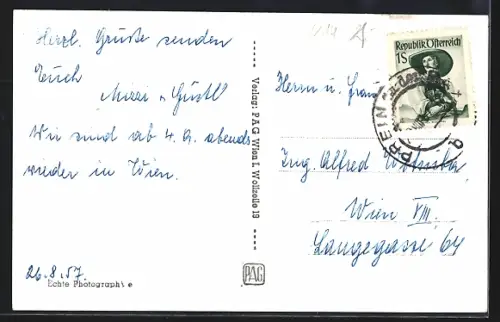 Herzl. Grüsse senden
Euch
Mizzi u. Gustl
Wir sind ab 4. 9. abends
wieder in Wien.
26.8.57.
Echte Photographie
Verlag: PAG Wien I, Wollzeile 19
PAG
Republik Österreich
1S
PREIN
Herrn u. Frau
Ing. Alfred
Wien VIII.
Langegasse 64